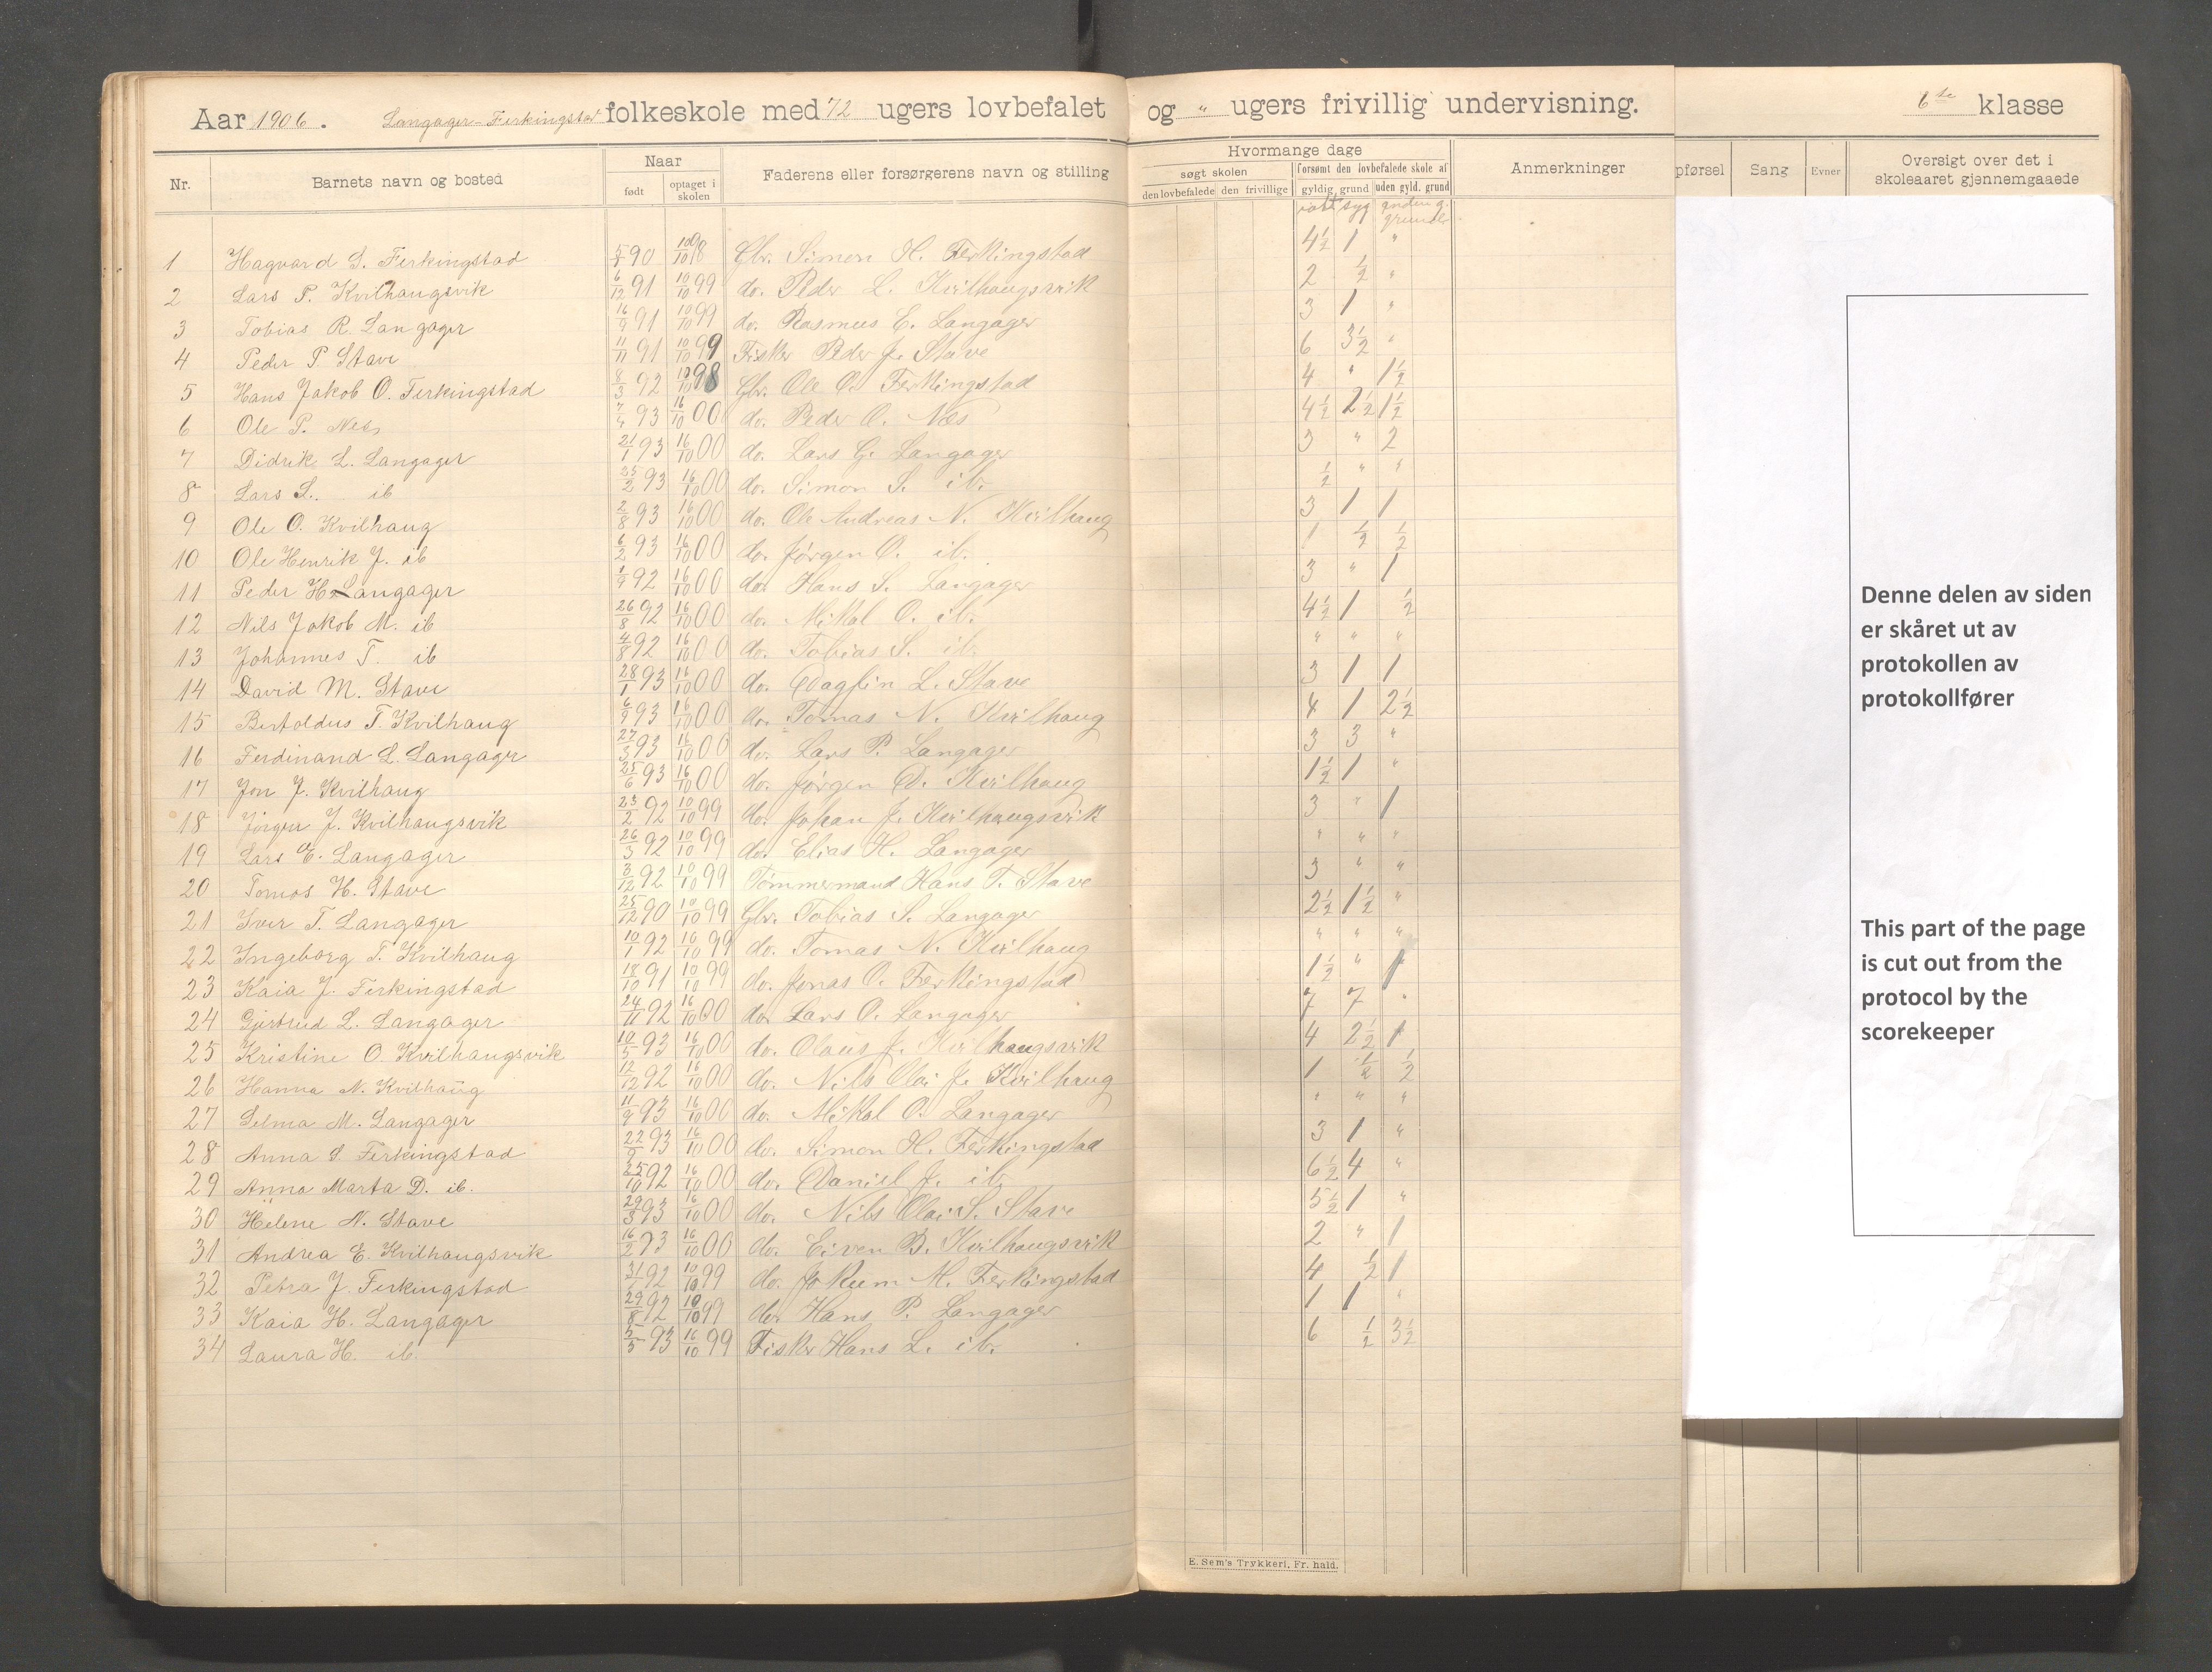 Aar 1906. Langager-Ferkingstad folkeskole med 12 ugers lovbefalet og " ugers frivillig undervisning. 6te klasse
Nr. Barnets navn og bosted Naar født optaget i skolen Faderens eller forsørgerens navn og stilling
Hvormange dage søgt skolen den lovbefalede den frivillige forsømt den lovbefalede skole af gyldig grund uden gyld. grund Anmerkninger
pførsel Sang Evner Oversigt over det i skoleaaret gjennemgaaede
ialt syg anden g. grunde
1 Hagvard S. Ferkingstad 5/8 90 10/10 98 Gbr. Simon H. Ferkingstad 4½ 1 "
2 Lars P. Kvilhaugsvik 6/12 91 10/10 99 do. Peder L. Kvilhaugsvik 2 ½ "
3 Tobias R. Langager 16/9 91 10/10 99 do. Rasmus E. Langager 3 1 "
4 Peder P Stave 11/11 91 10/10 99 Fisker Peder J. Stave 6 3½ "
5 Hans Jakob O. Ferkingstad 8/3 92 10/10 98 Gbr. Ole O. Ferkingstad 4 " 1½
6 Ole P. Nes 7/4 93 16/10 00 do. Peder O. Næs 4½ 2½ 1½
7 Didrik L. Langager 21/1 93 16/10 00 do. Lars G. Langager 3 " 2
8 Lars S. ib 25/2 93 16/10 00 do. Simon S. ib. ½ " "
9 Ole O. Kvilhaug 2/8 93 16/10 00 do. Ole Andreas N. Kvilhaug 3 1 1
10 Ole Henrik J. ib 6/2 93 16/10 00 do. Jørgen O. ib. 1 ½ ½
11 Peder H. Langager 1/9 92 16/10 00 do. Hans S. Langager 3 " 1
12 Nils Jakob M. ib 26/8 92 16/10 00 do. Mikal O. ib. 4½ 1 ½
13 Johannes T. ib 4/8 92 16/10 00 do. Tobias S. ib. " " "
14 David M. Stave 28/1 93 16/10 00 do. Dagfin L. Stave 3 1 1
15 Bertoldus T. Kvilhaug 6/9 93 16/10 00 do. Tomas N. Kvilhaug 4 1 2½
16 Ferdinand L. Langager 27/3 93 16/10 00 do. Lars P. Langager 3 3 "
17 Jon J. Kvilhaug 25/6 93 16/10 00 do. Jørgen D. Kvilhaug 1½ 1 "
18 Jørgen J. Kvilhaugsvik 23/2 92 10/10 99 do. Johan J. Kvilhaugsvik 3 " 1
19 Lars E. Langager 26/3 92 10/10 99 do. Elias H. Langager " " "
20 Tomas H. Stave 3/12 92 10/10 99 Tømmermand Hans T. Stave 3 " "
21 Iver T. Langager 25/12 90 10/10 99 Gbr. Tobias S. Langager 2½ 1½ "
22 Ingeborg T. Kvilhaug 10/1 92 10/10 99 do. Tomas N. Kvilhaug " " "
23 Kaia J. Ferkingstad 18/10 91 10/10 99 do. Jonas O. Ferkingstad 1½ " 1
24 Gjertrud L. Langager 24/11 92 16/10 00 do. Lars O. Langager 7 7 "
25 Kristine O. Kvilhaugsvik 10/5 93 16/10 00 do. Olaus J. Kvilhaugsvik 4 2½ 1
26 Hanna N. Kvilhaug 12/12 92 16/10 00 do. Nils Olai J. Kvilhaug 1 ½ ½
27 Selma M. Langager 11/9 93 16/10 00 do. Mikal O. Langager " " "
28 Anna S. Ferkingstad 22/9 93 16/10 00 do. Simon H. Ferkingstad 3 1 "
29 Anna Marta D. ib. 25/10 92 16/10 00 do. Daniel J. ib. 6½ 4 "
30 Helene N. Stave 29/3 93 16/10 00 do. Nils Olai S. Stave 5½ 1 "
31 Andrea E. Kvilhaugsvik 16/2 93 16/10 00 do. Eiven B. Kvilhaugsvik 2 " 1
32 Petra J. Ferkingstad 92 10/10 99 do. Jokum M. Ferkingstad 4 ½ 1
33 Kaia H. Langager 29/8 92 10/10 99 do. Hans P. Langager 1 1 "
34 Laura H. ib. 5/5 93 16/10 99 Fisker Hans L. ib. 6 ½ 3½
E. Sem's Trykkeri, Fr. hald.
Denne delen av siden
er skåret ut av
protokollen av
protokollfører
This part of the page
is cut out from the
protocol by the
scorekeeper